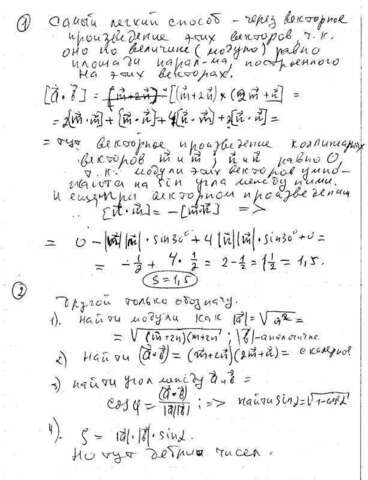 ① Самый легкий способ - через векторное
произведение этих векторов т.к.
оно по величине (модулю) равно
площади парал-ма, построенного
на этих векторах.
[a⃗·b⃗] = [(m⃗+2n⃗)×(2m⃗+n⃗)] =
= 2[m⃗·m⃗]+[m⃗·n⃗]+4[n⃗·m⃗]+2[n⃗·n⃗] =
= тут векторное произведение коллинеарных
векторов m⃗ и m⃗; n⃗ и n⃗ равно 0,
т.к. модули этих векторов умно-
жаются на sin угла между ними.
и ещё при векторном произведении
[n⃗·m⃗] = -[m⃗·n⃗] =>
= 0-|m⃗||n⃗|·sin30°+4|n⃗||m⃗|·sin30°+0 =
= -1/2 + 4·1/2 = 2-1/2 = 1 1/2 = 1,5.
S=1,5
② Другой только обозначу.
1). Найти модули как |a⃗| = √a⃗² =
= √(m⃗+2n⃗)(m⃗+2n⃗) ; |b⃗| - аналогично.
2) Найти (a⃗·b⃗) = (m⃗+2n⃗)(2m⃗+n⃗) =
3) найти угол между a⃗ и b⃗ =
cos α = (a⃗·b⃗)/|a⃗||b⃗| ; => найти sin α = √1-cos²α
4). S = |a⃗|·|b⃗|·sin α.
Но тут дебри чисел.